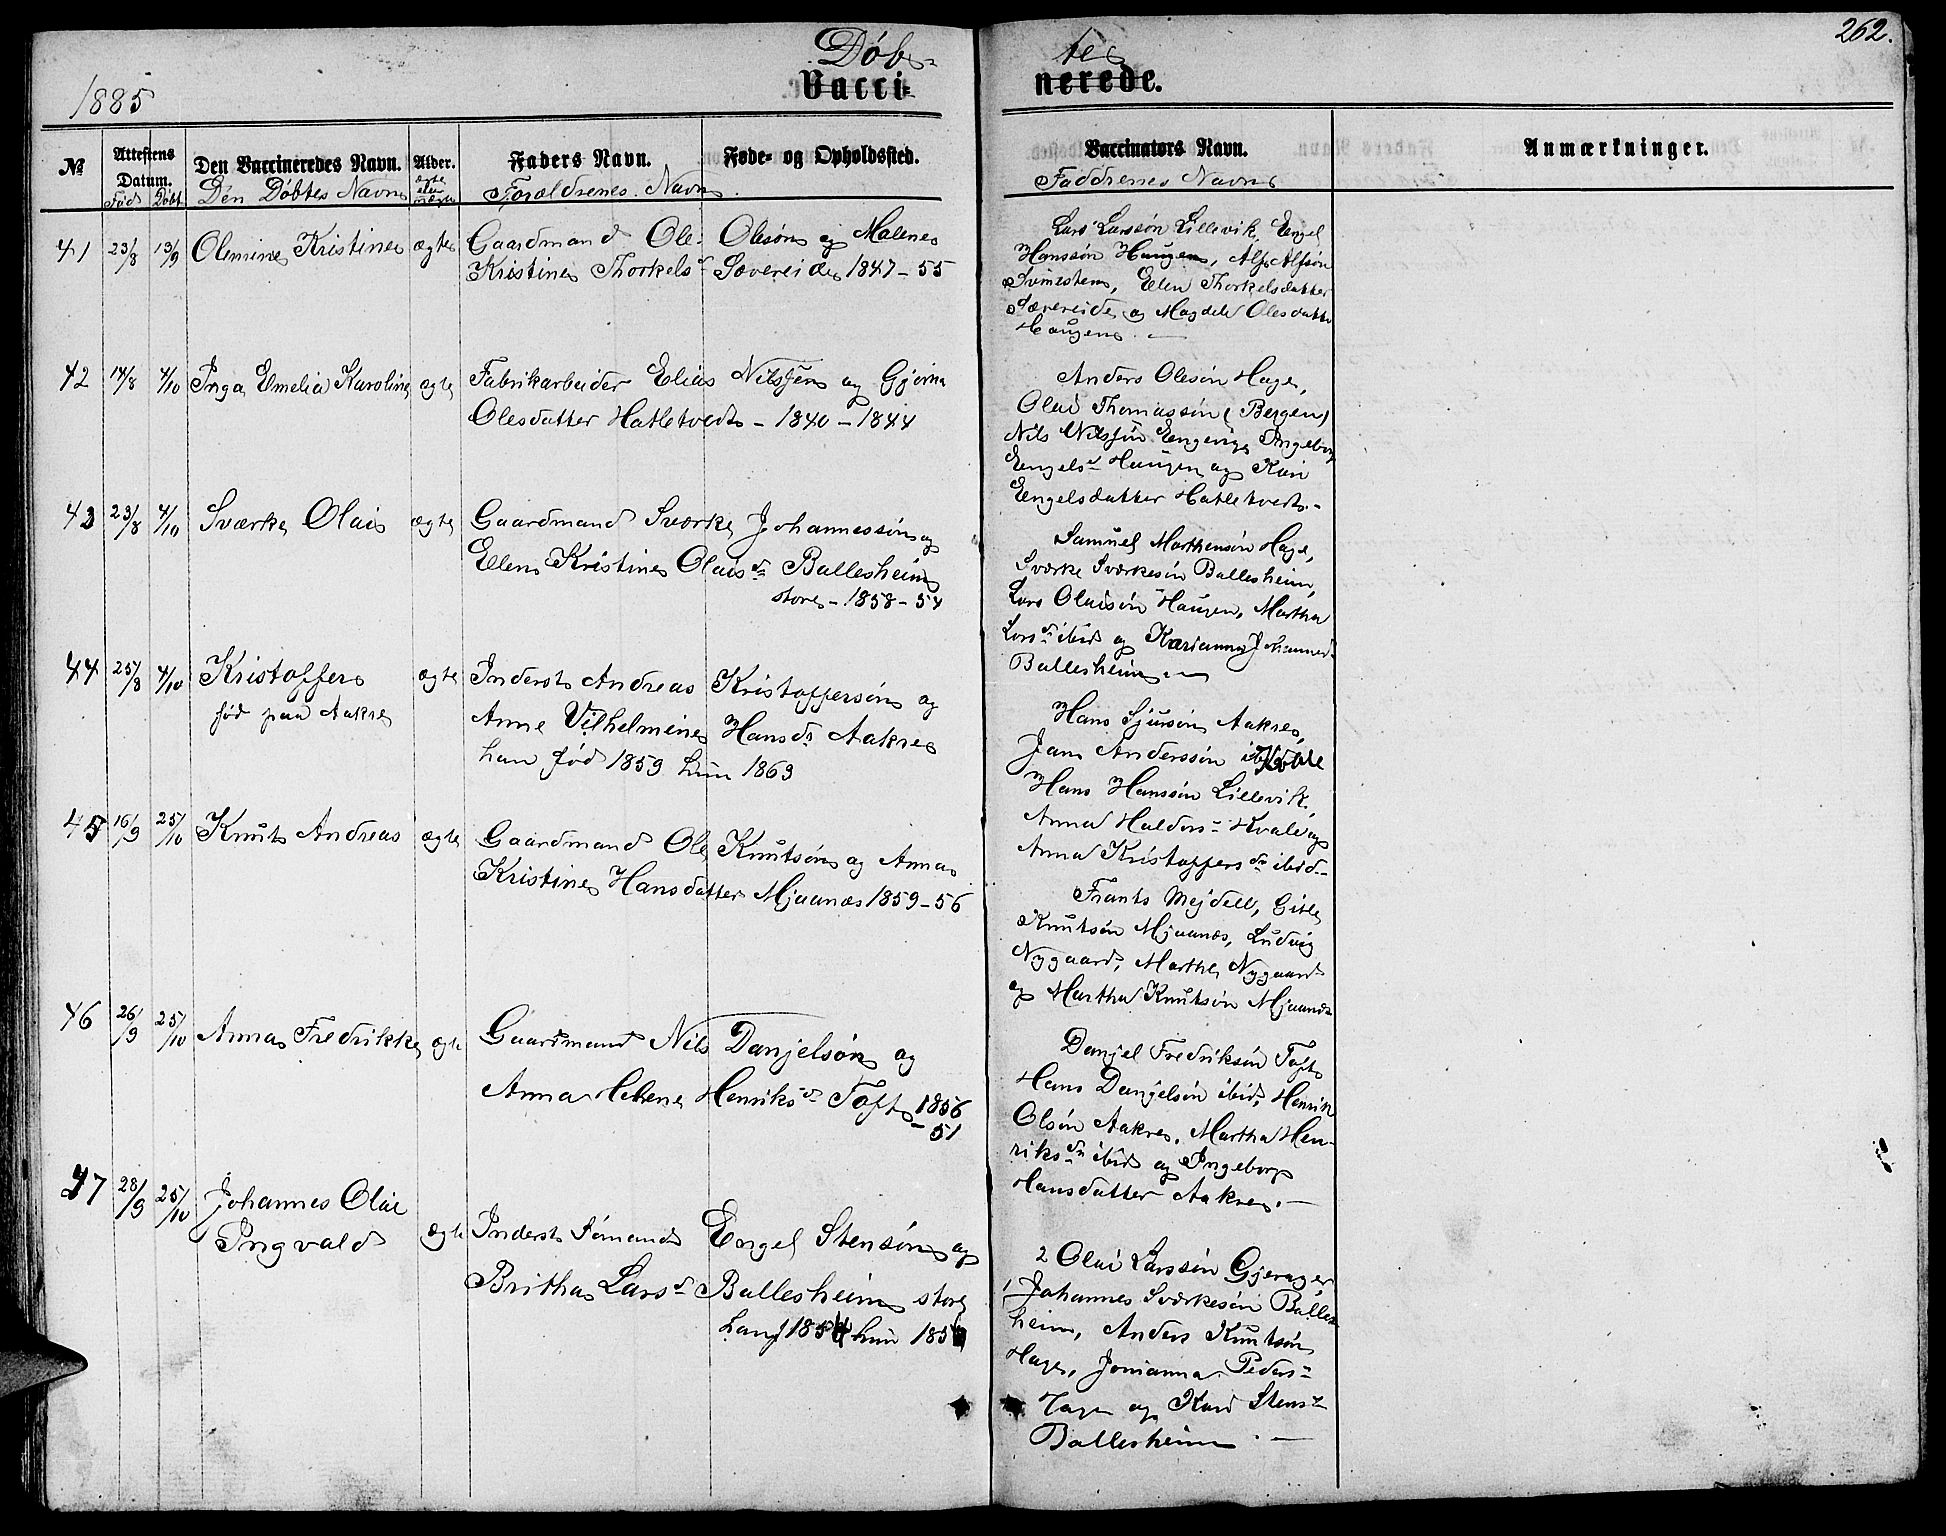 262.
1885
Døb-
tes
Vacci-
nerede.
No
Attestens Datum.
Den Vaccineredes Navn.
Alder.
Faders Navn.
Føde- og Opholdssted.
Vaccinators Navn.
Anmærkninger.
Fød Døbt
Den Døbtes Navn
ægte eller uægte
Forældrenes Navn
Faddrenes Navn
41 23/8 13/9 Olemine Kristine ægte Gaardmand Ole Olesøn og Malene
Kristine Thorkelsd Sævereide 1847-55
Lars Larssøn Lillevik, Engel
Hanssøn Haugen, Alf Alfsøn
Svinesten, Elen Thorkelsdatter
Sævereide og Magdele Olesdatter
Haugen. -
42 14/8 4/10 Inga Emelia Karoline ægte Fabrikarbeider Elias Nilssen og Gjorna
Olesdatter Hatletvedt - 1840 - 1844
Anders Olesøn Hage,
Olai Thomassøn (Bergen)
Nils Nilssøn Engevig, Ingeborg
Engelsd Haugen og Kari
Engelsdatter Hatletvedt. -
43 23/8 4/10 Sværke Olai ægte Gaardmand Sværke Johannessøn og
Ellen Kristine Olaisd Ballesheim
store - 1858 - 54
Samuel Marthensøn Hage,
Sværke Sværkesøn Ballesheim,
Lars Olaisøn Haugen, Martha
Larsd ibid og Karianna Johannesd
Ballesheim. -
44 25/8 4/10 Kristoffer ægte Inderst Andreas Kristoffersøn og
fød paa Aakre Anne Vilhelmine Hansd Aakre
han fød 1859 hun 1863
Hans Sjursøn Aakre,
Jan Anderssøn Kvale
Hans Hanssøn Lillevik,
Anna Haldorsd Kvale og
Anna Kristoffersd ibid. -
45 16/9 25/10 Knut Andreas ægte Gaardmand Ole Knutsøn og Anna
Kristine Hansdatter Mjaanæs 1859-56
Frants Mejdell, Gitle
Knutsøn Mjaanæs, Ludvig
Nygaard, Marthe Nygaard
og Martha Knutsøn Mjaanæs
46 26/9 25/10 Anna Fredrikke ægte Gaardmand Nils Danjelsøn og
Anna Helene Henriksd Toft 1856
- 51
Danjel Fredriksøn Toft,
Hans Danjelsøn ibid, Henrik
Olsøn Aakre, Martha Hen-
riksd ibid og Ingeborg
Hansdatter Aakre. -
47 28/9 25/10 Johannes Olai
Ingvald ægte Inderst Sømand Engel Stensøn og
Britha Larsd Ballesheim store
han f 1854 hun 185
2 Olai Larssøn Gjerager,
1 Johannes Sværkesøn Balles-
heim, Anders Knutsøn
Hage, Jonianna Pedersd
Hage og Kari Stensd
Ballesheim. -